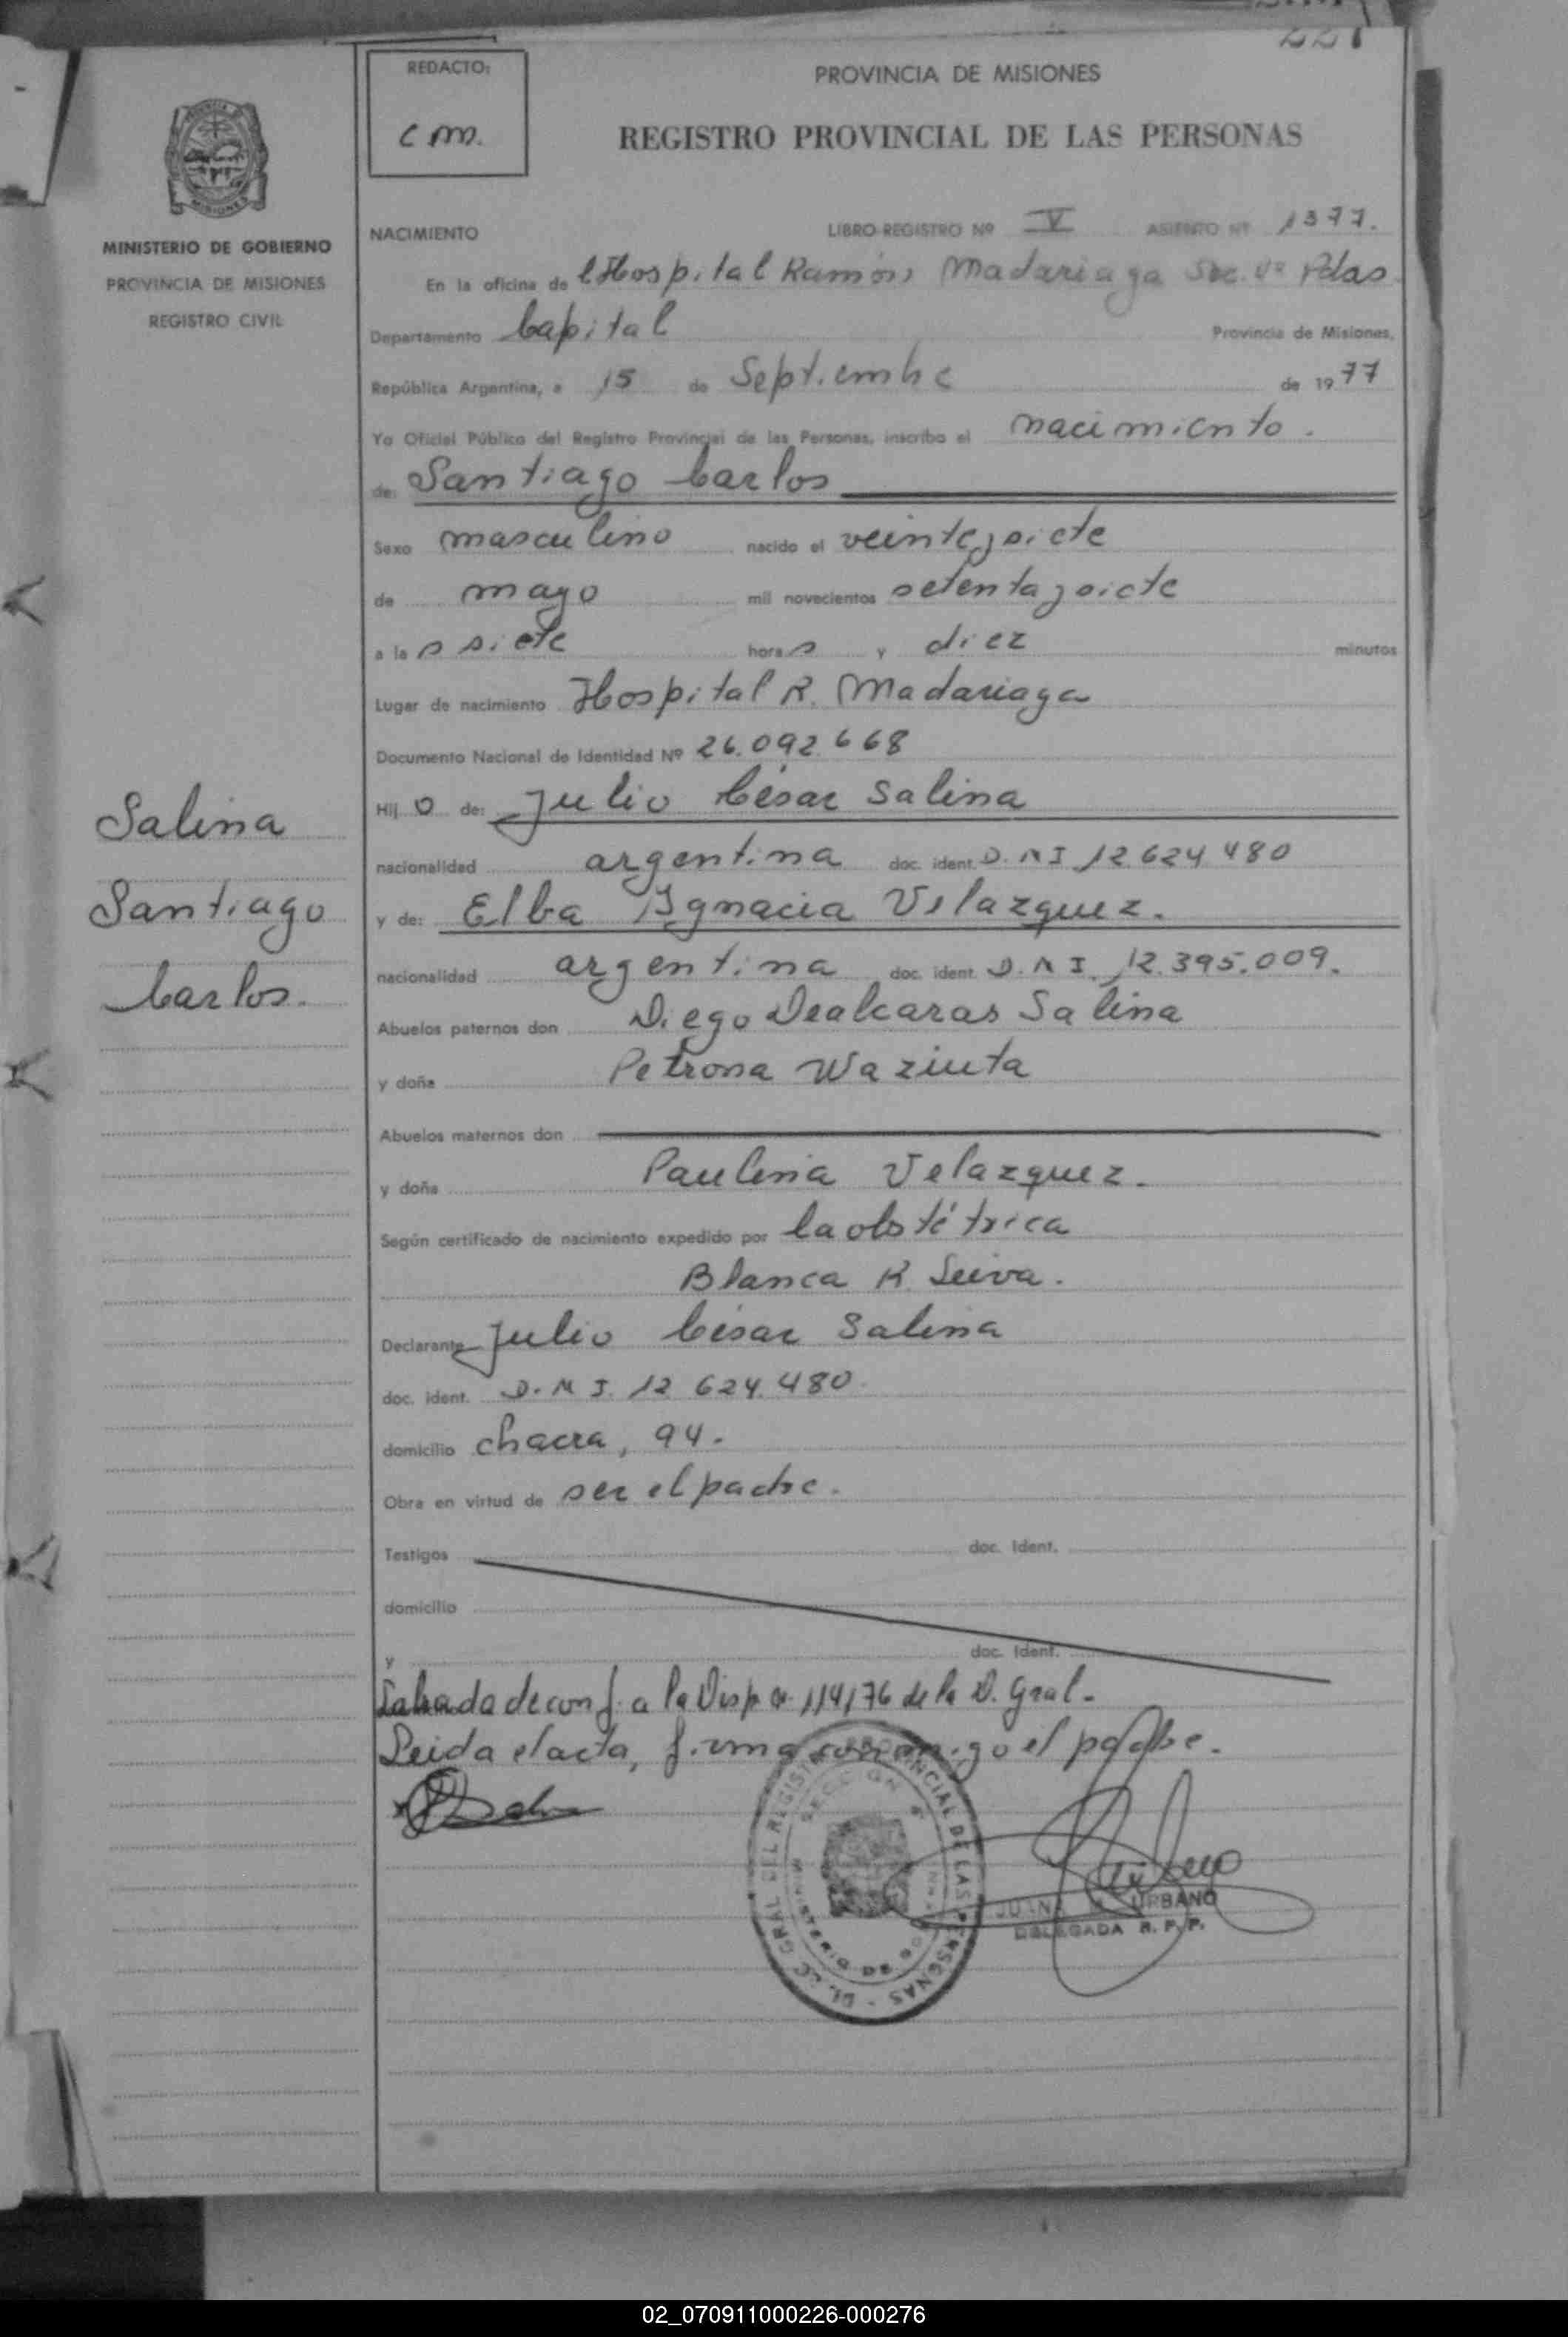 221
REDACTO:
C M.
PROVINCIA DE MISIONES
REGISTRO PROVINCIAL DE LAS PERSONAS
MISIONES
MINISTERIO DE GOBIERNO
PROVINCIA DE MISIONES
REGISTRO CIVIL
NACIMIENTO LIBRO REGISTRO Nº V ASIENTO Nº 1377.
En la oficina de l Hospital Ramón Madariaga Sec. Vª Pdas.
Departamento Capital Provincia de Misiones,
República Argentina, a 15 de Septiembre de 1977
Yo Oficial Público del Registro Provincial de las Personas, inscribo el nacimiento.
de: Santiago Carlos
Sexo masculino nacido el veinteysiete
de mayo mil novecientos setentaysiete
a las siete horas y diez minutos
Lugar de nacimiento Hospital R. Madariaga
Documento Nacional de Identidad Nº 26.092.668
Hijo de: Julio César Salina
nacionalidad argentina doc. ident. D.N.I 12.624.480
y de: Elba Ygnacia Velazquez.
nacionalidad argentina doc. ident. D.N.I. 12.395.009.
Abuelos paternos don Diego Dealcaras Salina
y doña Petrona Waziuta
Abuelos maternos don
y doña Paulina Velazquez.
Según certificado de nacimiento expedido por la obstétrica
Blanca R. Leiva.
Declarante Julio César Salina
doc. ident. D.N.I. 12.624.480
domicilio chacra, 94.
Obra en virtud de ser el padre.
Testigos doc. Ident.
domicilio
y doc. Ident.
Labrada de conf. a la Disp. Nº 114/76 de la D. Gral.
Leida el acta, firma conmigo el padre.
Salina
Santiago
Carlos.
DIREC GRAL DEL REGISTRO PROVINCIAL DE LAS PERSONAS
SECCION
MINISTERIO DE GOB
JUANA URBANO
DELEGADA R. P. P.
02_070911000226-000276